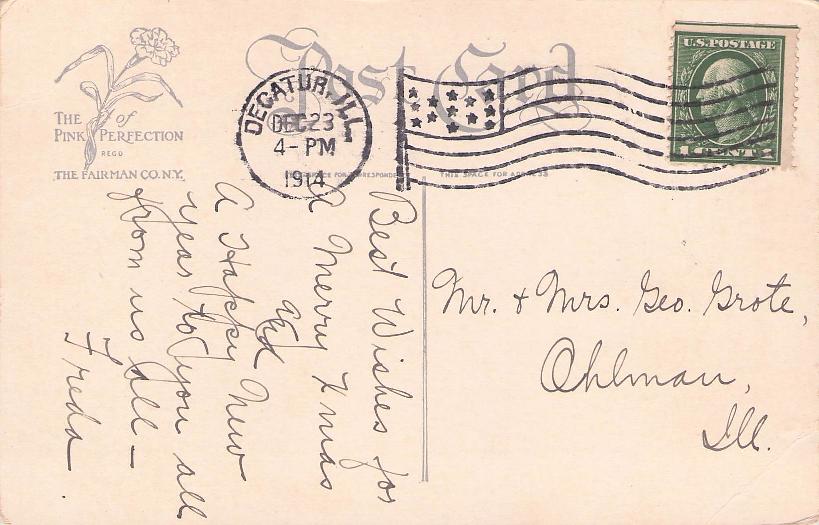 Post Card
THE of
PINK PERFECTION
REGD
THE FAIRMAN CO. N.Y.
DECATUR, ILL.
DEC 23
4- PM
1914
U.S. POSTAGE
1 CENT 1
SPACE FOR CORRESPONDENCE
THIS SPACE FOR ADDRESS
Best Wishes for
a Merry Xmas
and
A Happy New
year to you all
from us all –
Freda.
Mr. & Mrs. Geo. Grote,
Ohlman,
Ill.